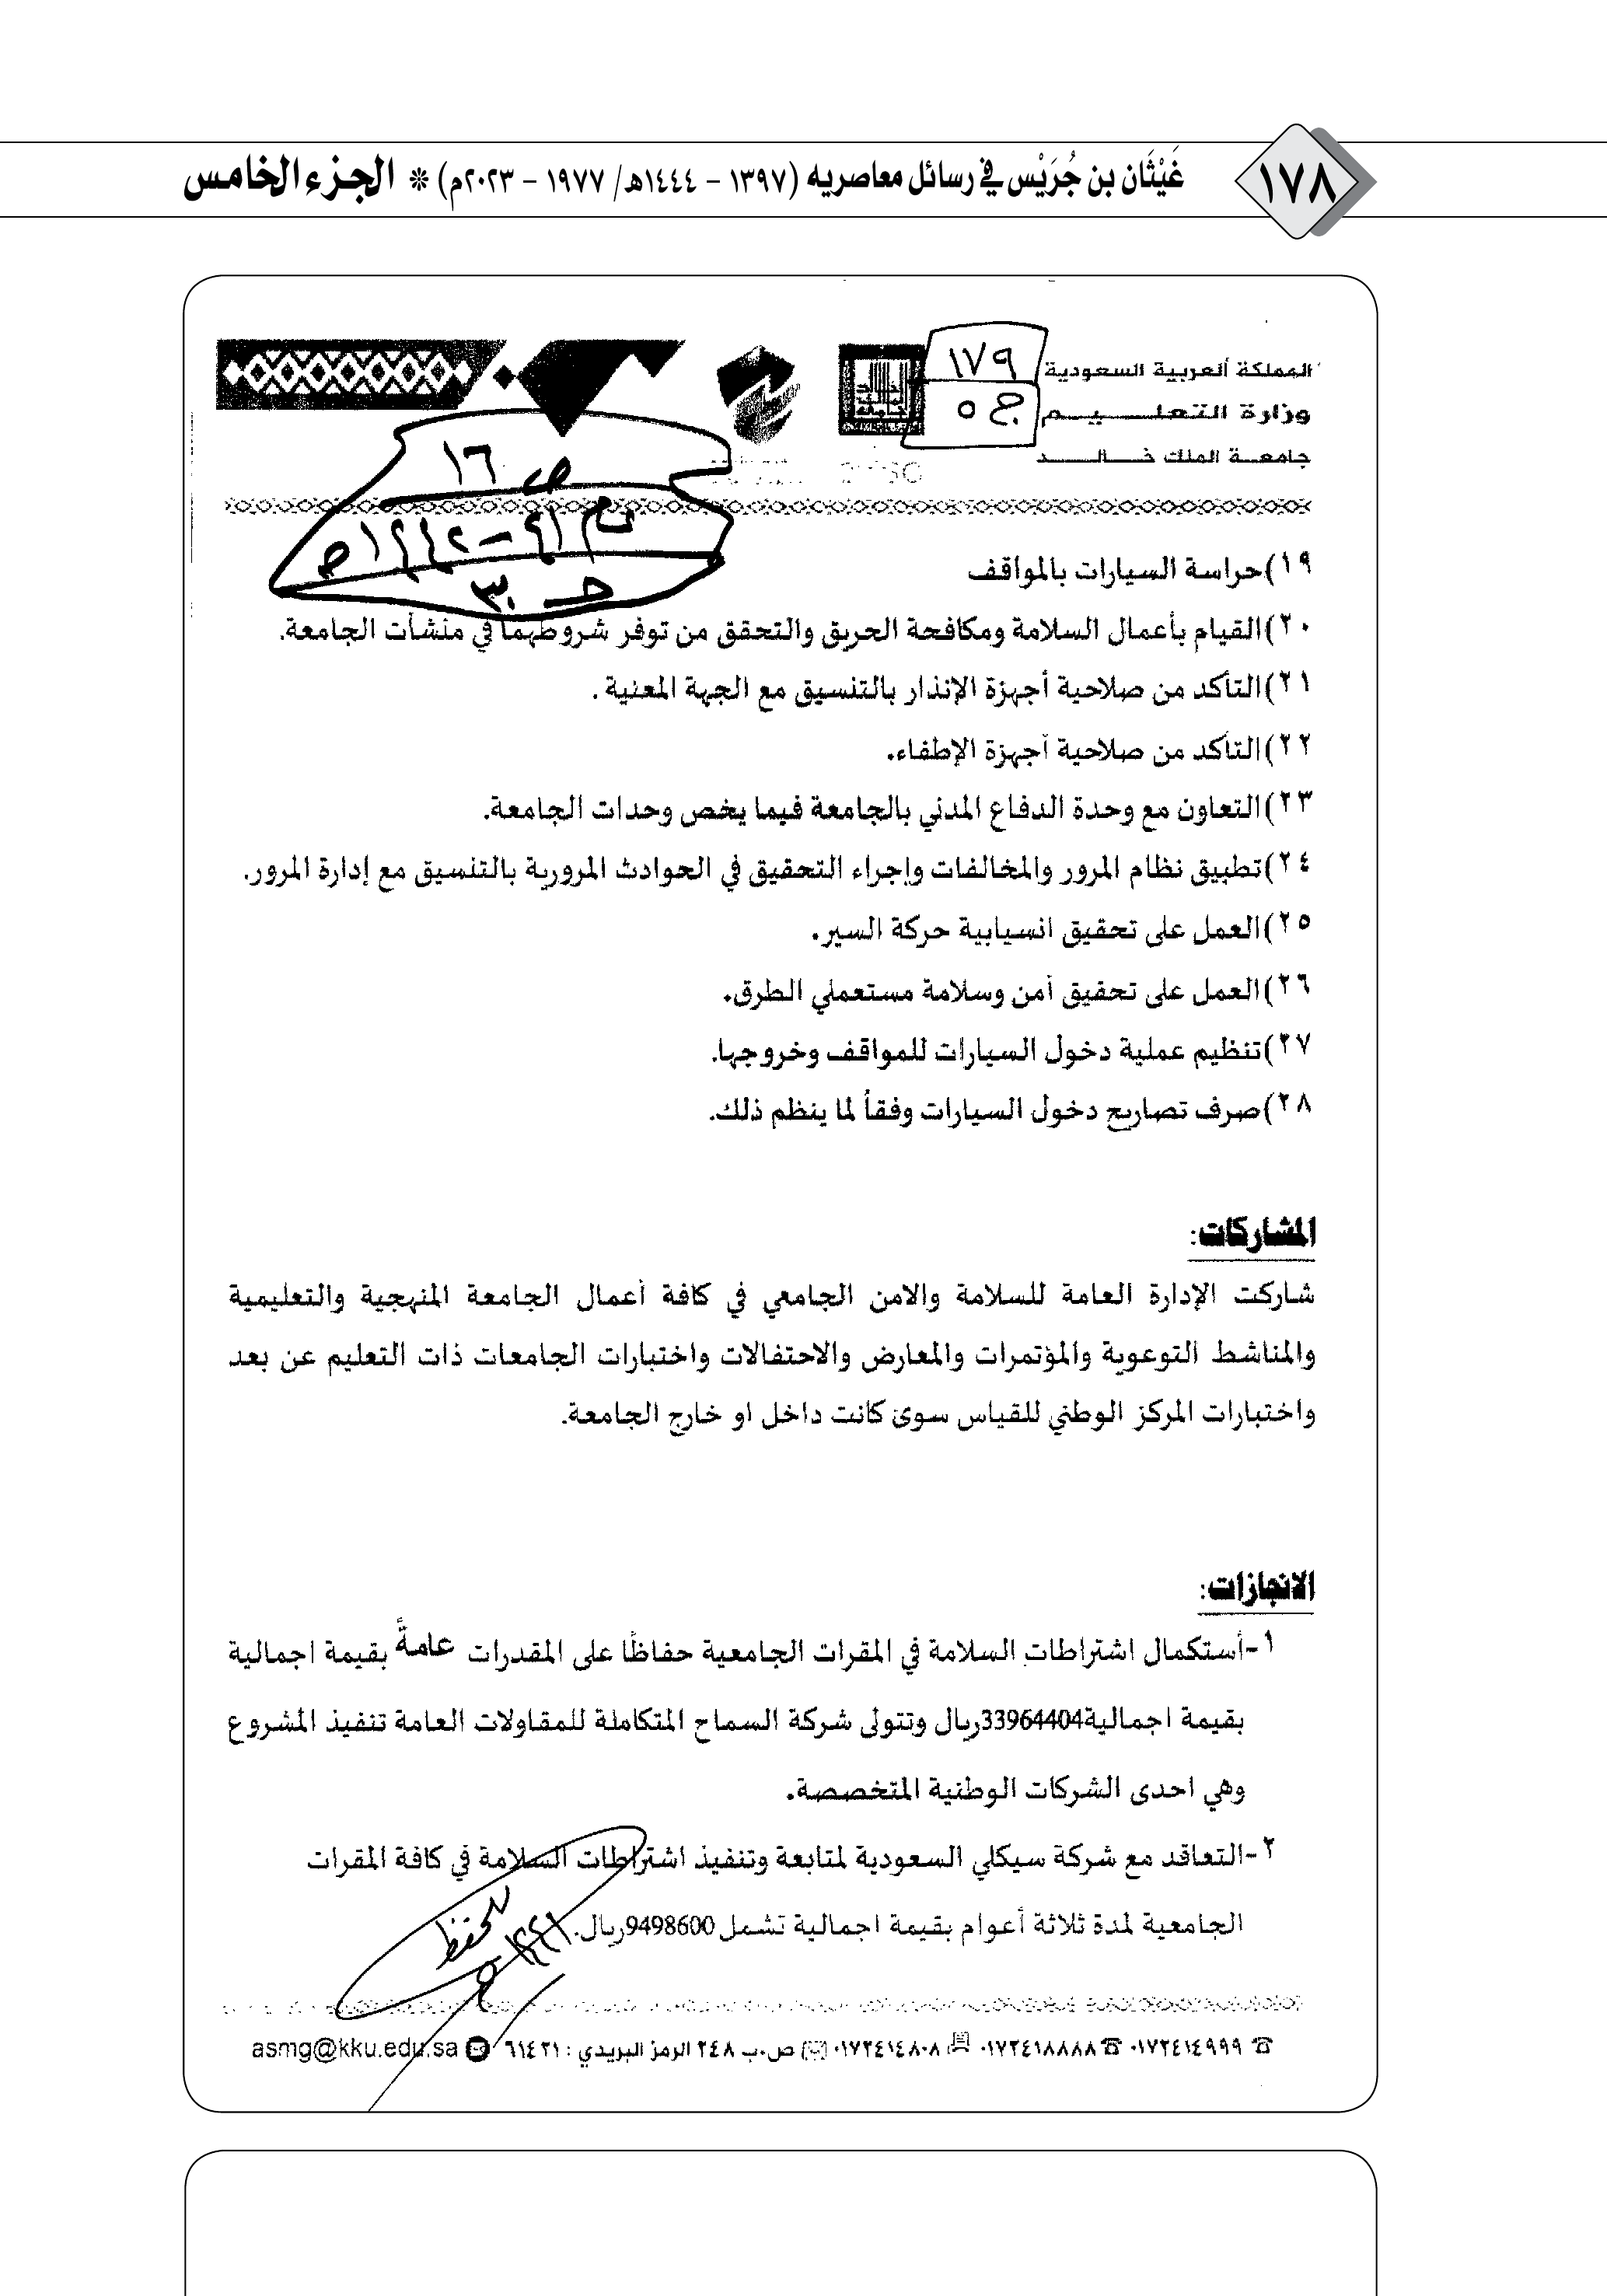 ١٧٨
غَيْثَان بن جُرَيْس في رسائل معاصريه (١٣٩٧ - ١٤٤٤هـ/ ١٩٧٧ - ٢٠٢٣م) ❊ الجزء الخامس
المملكة العربية السعودية
وزارة التعليم
جامعة الملك خالد
١٧٩
ج ٥
ص ١٦
١٩)حراسة السيارات بالمواقف
٢٠)القيام بأعمال السلامة ومكافحة الحريق والتحقق من توفر شروطهما في منشآت الجامعة.
٢١)التأكد من صلاحية أجهزة الإنذار بالتنسيق مع الجهة المعنية .
٢٢)التأكد من صلاحية أجهزة الإطفاء.
٢٣)التعاون مع وحدة الدفاع المدني بالجامعة فيما يخص وحدات الجامعة.
٢٤)تطبيق نظام المرور والمخالفات وإجراء التحقيق في الحوادث المرورية بالتنسيق مع إدارة المرور.
٢٥)العمل على تحقيق انسيابية حركة السير.
٢٦)العمل على تحقيق أمن وسلامة مستعملي الطرق.
٢٧)تنظيم عملية دخول السيارات للمواقف وخروجها.
٢٨)صرف تصاريح دخول السيارات وفقاً لما ينظم ذلك.
المشاركات:
شاركت الإدارة العامة للسلامة والامن الجامعي في كافة أعمال الجامعة المنهجية والتعليمية
والمناشط التوعوية والمؤتمرات والمعارض والاحتفالات واختبارات الجامعات ذات التعليم عن بعد
واختبارات المركز الوطني للقياس سوئ كانت داخل او خارج الجامعة.
الانجازات:
١-أستكمال اشتراطات السلامة في المقرات الجامعية حفاظًا على المقدرات عامةً بقيمة اجمالية
بقيمة اجمالية33964404ريال وتتولى شركة السماح المتكاملة للمقاولات العامة تنفيذ المشروع
وهي احدى الشركات الوطنية المتخصصة.
٢-التعاقد مع شركة سيكلي السعودية لمتابعة وتنفيذ اشتراطات السلامة في كافة المقرات
الجامعية لمدة ثلاثة أعوام بقيمة اجمالية تشمل9498600ريال.
للحفظ
٠١٧٢٤١٤٩٩٩ ٠١٧٢٤١٨٨٨٨ ٠١٧٢٤١٤٨٠٨ ص.ب ٢٤٨ الرمز البريدي : ٦١٤٢١ asmg@kku.edu.sa